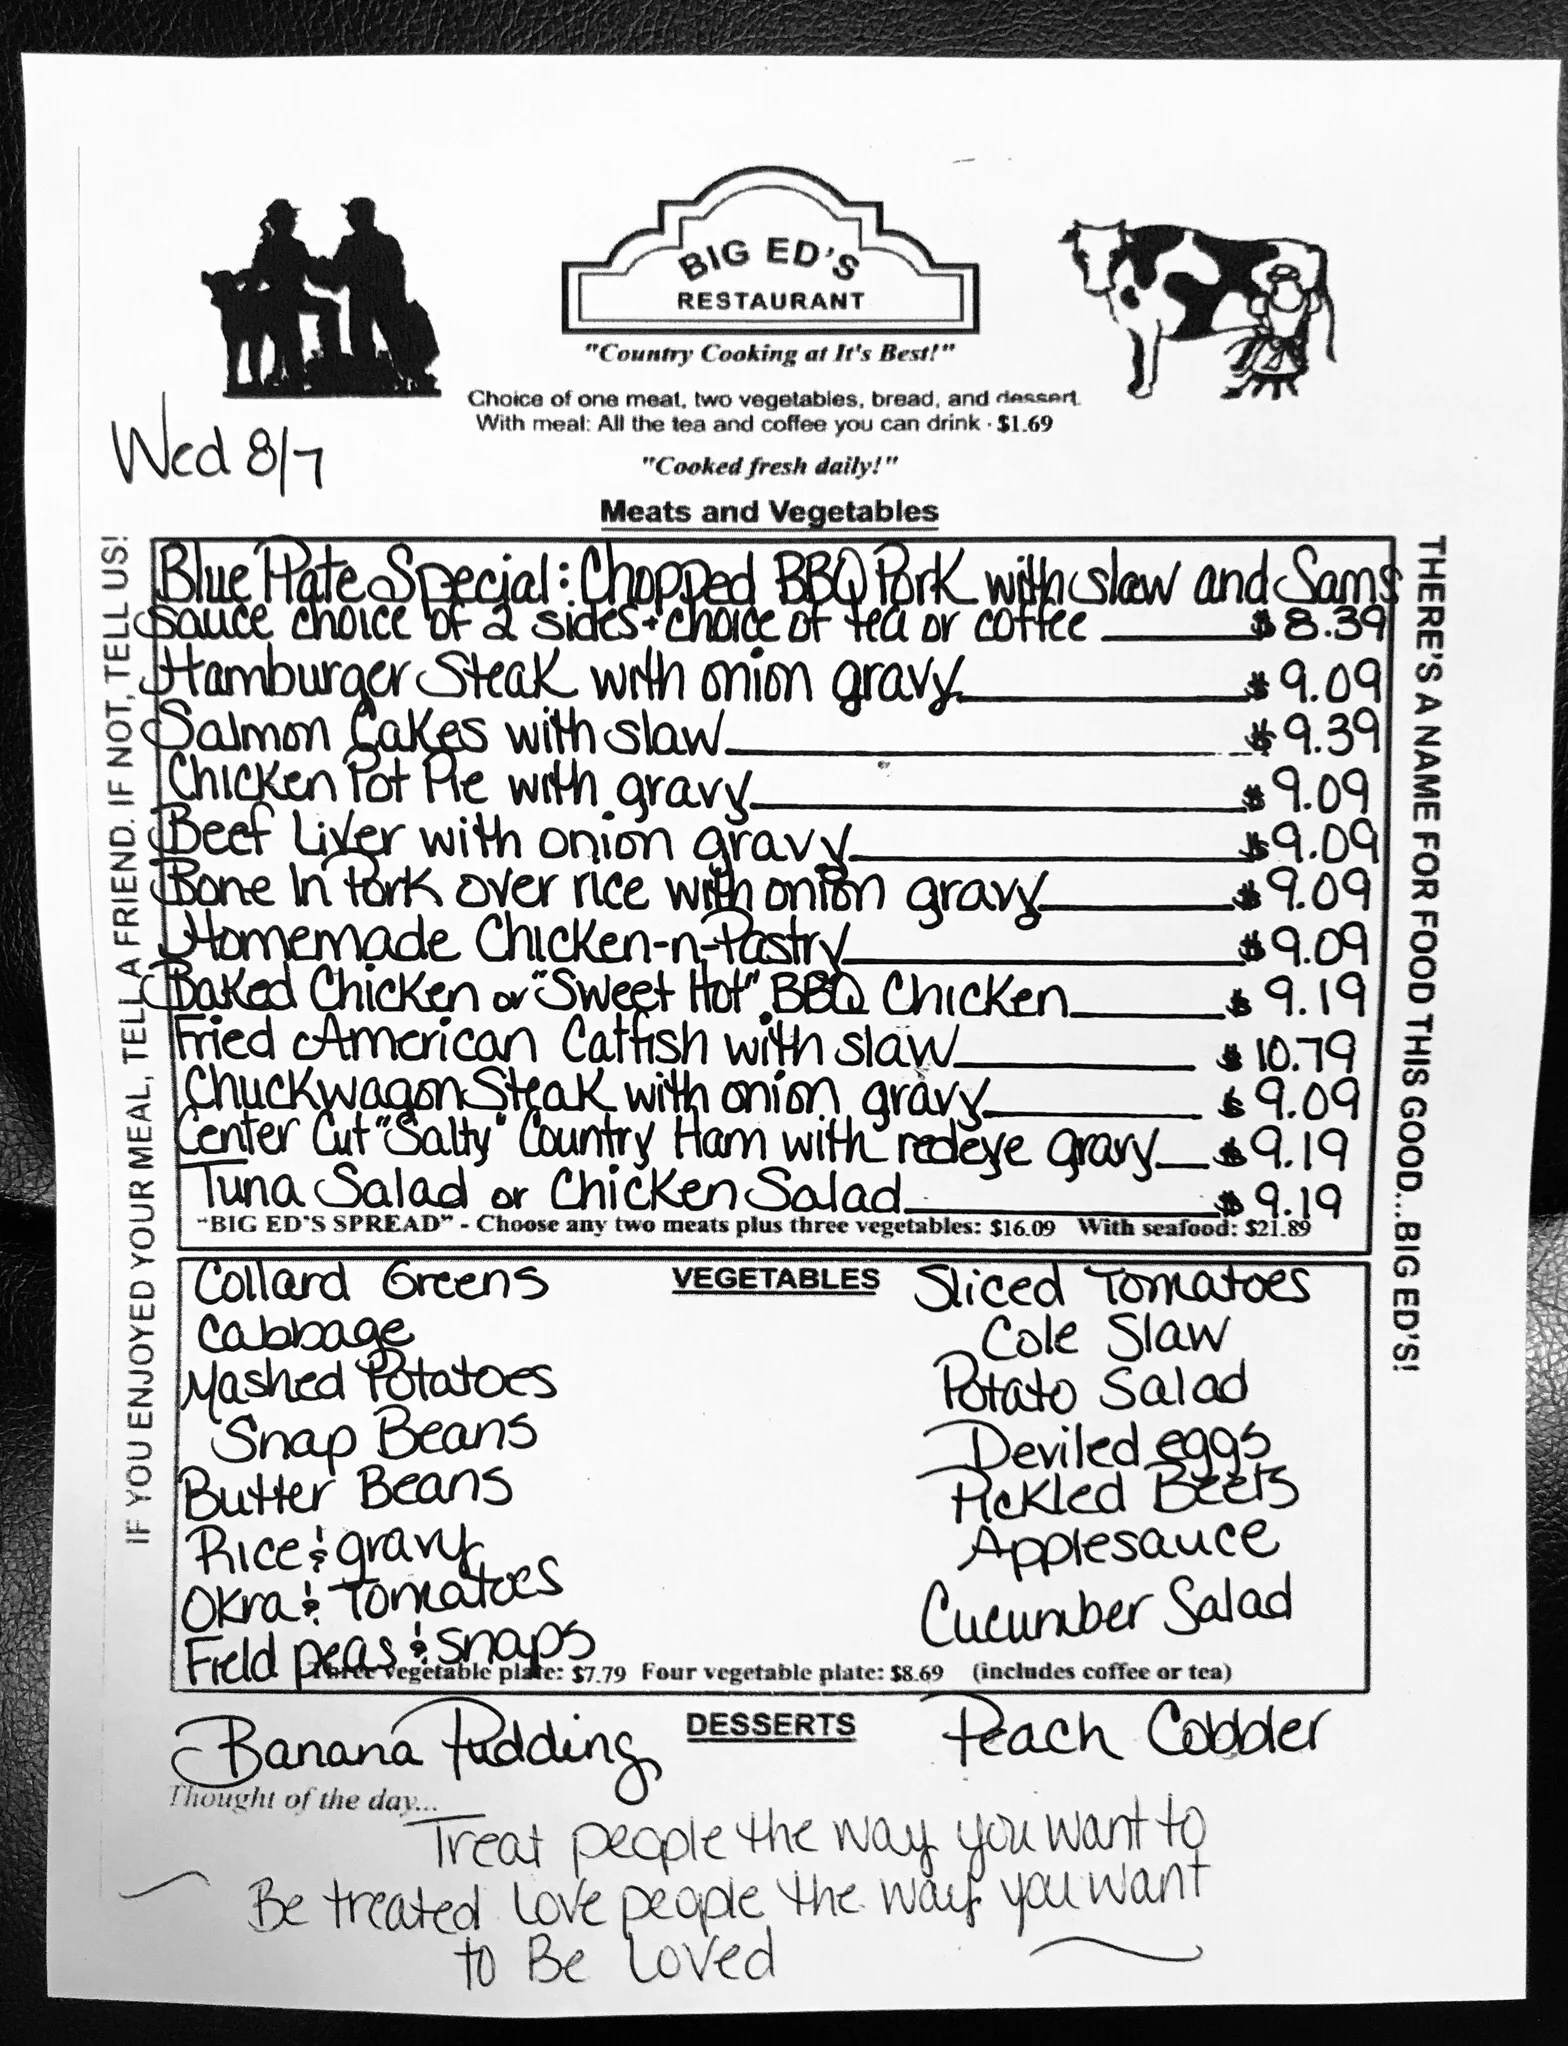 BIG ED'S
RESTAURANT
"Country Cooking at It's Best!"
Choice of one meat, two vegetables, bread, and dessert.
With meal: All the tea and coffee you can drink - $1.69
Wed 8/7
"Cooked fresh daily!"
Meats and Vegetables
IF YOU ENJOYED YOUR MEAL, TELL A FRIEND. IF NOT, TELL US!
THERE'S A NAME FOR FOOD THIS GOOD...BIG ED'S!
Blue Plate Special: Chopped BBQ Pork with slaw and Sams
sauce choice of 2 sides + choice of tea or coffee $8.39
Hamburger Steak with onion gravy $9.09
Salmon Cakes with slaw $9.39
Chicken Pot Pie with gravy $9.09
Beef Liver with onion gravy $9.09
Bone In Pork over rice with onion gravy $9.09
Homemade Chicken-n-Pastry $9.09
Baked Chicken or "Sweet Hot" BBQ Chicken $9.19
Fried American Catfish with slaw $10.79
Chuckwagon Steak with onion gravy $9.09
Center Cut "Salty" Country Ham with redeye gravy $9.19
Tuna Salad or Chicken Salad $9.19
"BIG ED'S SPREAD" - Choose any two meats plus three vegetables: $16.09 With seafood: $21.89
VEGETABLES
Collard Greens
Cabbage
Mashed Potatoes
Snap Beans
Butter Beans
Rice & gravy
Okra & Tomatoes
Field peas & snaps
Sliced Tomatoes
Cole Slaw
Potato Salad
Deviled eggs
Pickled Beets
Applesauce
Cucumber Salad
Three vegetable plate: $7.79 Four vegetable plate: $8.69 (includes coffee or tea)
DESSERTS
Banana Pudding
Peach Cobbler
Thought of the day...
Treat people the way you want to
Be treated love people the way you want
to Be loved